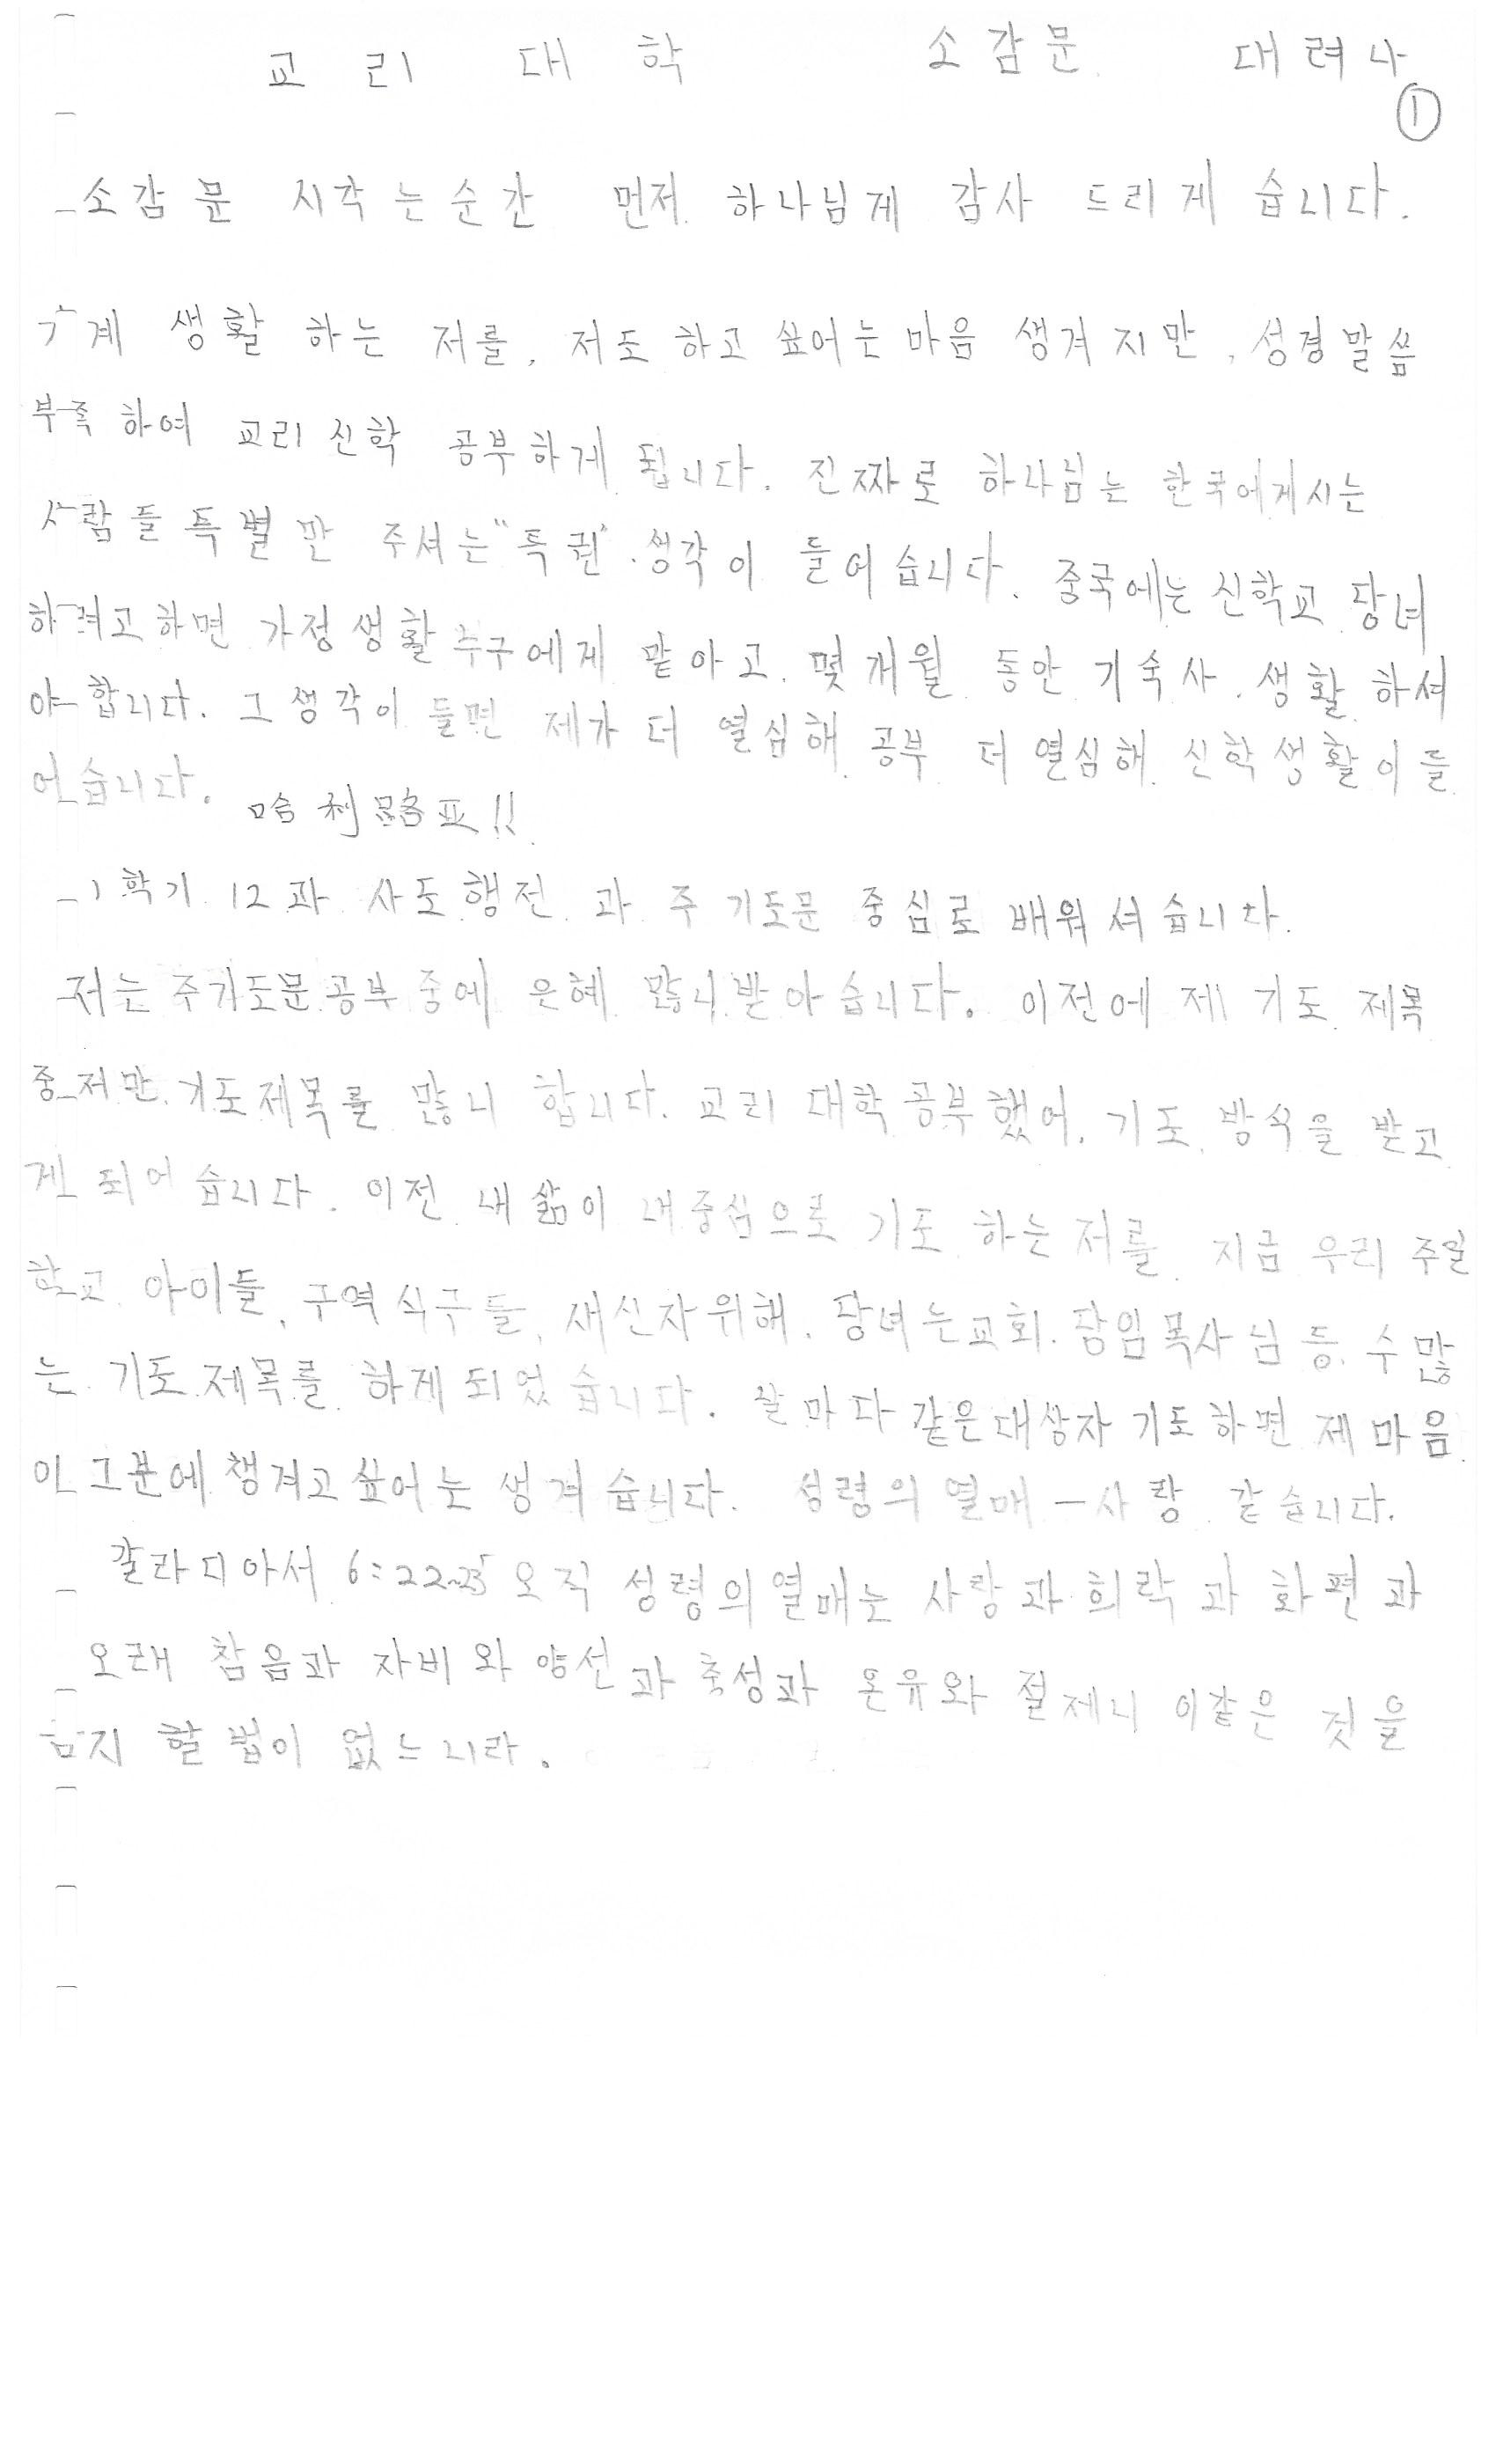 교리 대학 소감문 대려나
①
소감문 시작는순간 먼저 하나님게 감사 드리게 습니다.
계 생활 하는 저를, 저도 하고 싶어는 마음 생겨지만, 성경말씀
부족하여 교리신학 공부하게 됩니다. 진짜로 하나님는 한국에게시는
사람들 특별만 주셔는 "특권" 생각이 들어습니다. 중국에는 신학교 당녀
하려고하면 가정생활 누구에게 맡아고, 몇개월 동안 기숙사, 생활 하셔
야 합니다. 그 생각이 들면 제가 더 열심해 공부 더 열심해 신학생활이 들
어습니다. 哈利路亚!!
1학기 12과 사도행전 과 주기도문 중심로 배워셔습니다.
저는 주기도문공부 중에 은혜 많니 받아습니다. 이전에 제 기도 제목
중 저만 기도제목를 많니 합니다. 교리 대학공부했어, 기도 방식을 받고
게 되어습니다. 이전 내 삶이 내중심으로 기도 하는 저를 지금 우리 주일
학교 아이들, 구역식구들, 새신자위해, 당녀는교회, 담임목사님 등, 수많
는 기도 제목를 하게되었습니다. 날마다 같은대상자 기도하면 제마음
이 그분에 챙겨고싶어는 생겨습니다. 성령의 열매-사랑 같습니다.
갈라디아서 6:22~23 오직 성령의열매는 사랑과 희락과 화편과
오래 참음과 자비와 양선과 충성과 온유와 절제니 이같은 것을
금지 할 법이 없느니라.